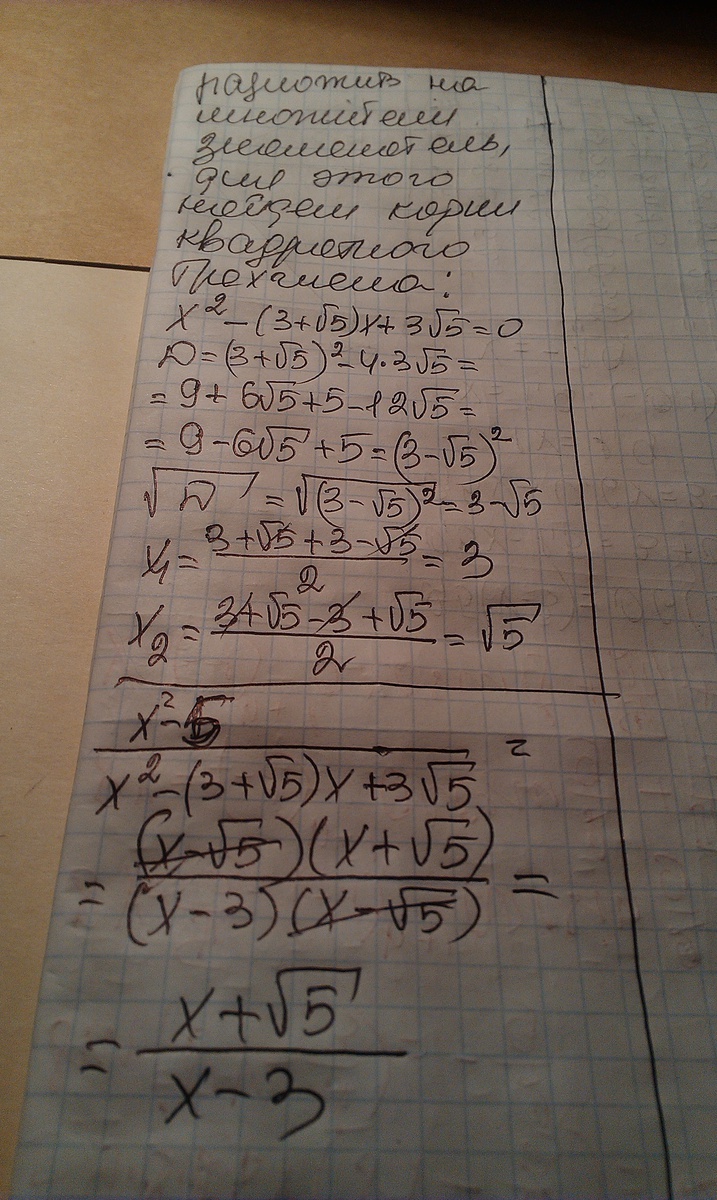 разложив на
множители
знаменатель,
для этого
найдем корни
квадратного
трехчлена:
x² - (3+√5)x + 3√5 = 0
D = (3+√5)² - 4·3√5 =
= 9 + 6√5 + 5 - 12√5 =
= 9 - 6√5 + 5 = (3-√5)²
√D = √(3-√5)² = 3-√5
x₁ = (3+√5+3-√5)/2 = 3
x₂ = (3+√5-3+√5)/2 = √5
(x²-5)/(x²-(3+√5)x+3√5) =
= ((x-√5)(x+√5))/((x-3)(x-√5)) =
= (x+√5)/(x-3)